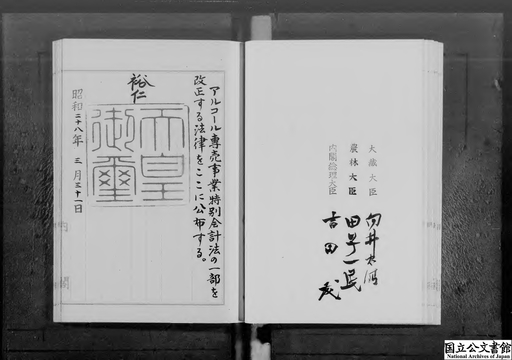 アルコール専売事業特別会計法の一部を
改正する法律をここに公布する。
裕仁
天皇
御璽
昭和二十八年三月三十一日
内閣
大蔵大臣 向井忠晴
農林大臣 田子一民
内閣総理大臣 吉田茂
国立公文書館
National Archives of Japan